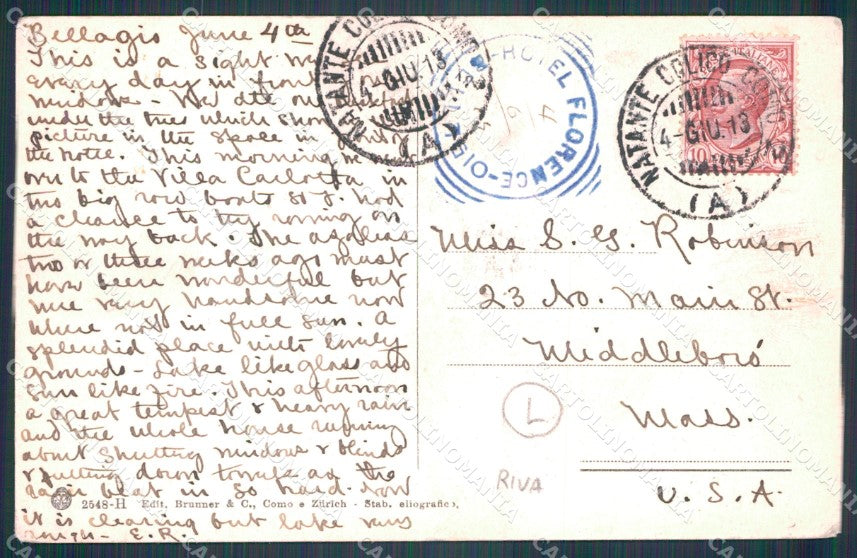 Bellagio June 4th
This is a sight we
every day in front
windows - We ate our
under the trees which show
picture in the space in
the hotel. This morning we
over to the Villa Carlotta in
two big row boats so I had
a chance to try rowing on
the way back. The azaleas
two or three weeks ago must
have been wonderful but
were very handsome now
where not in full sun. A
splendid place with lovely
grounds - Lake like glass and
sun like fire. This afternoon
a great tempest & heavy rain
and the whole house running
about shutting windows & blinds
& putting down towels as the
rain beat in so hard. Now
it is clearing but lake very
rough - E.R.
2548-H Edit. Brunner & C., Como e Zürich - Stab. eliografico,
NATANTE COLICO COMO
4-GIU.13
(A)
HOTEL FLORENCE
4
6
POSTE ITALIANE
10
NATANTE COLICO COMO
4-GIU.13
(A)
Miss S. G. Robinson
23 No. Main St.
Middleboro
Mass.
U.S.A.
L
RIVA
CARTOLINOMANIA